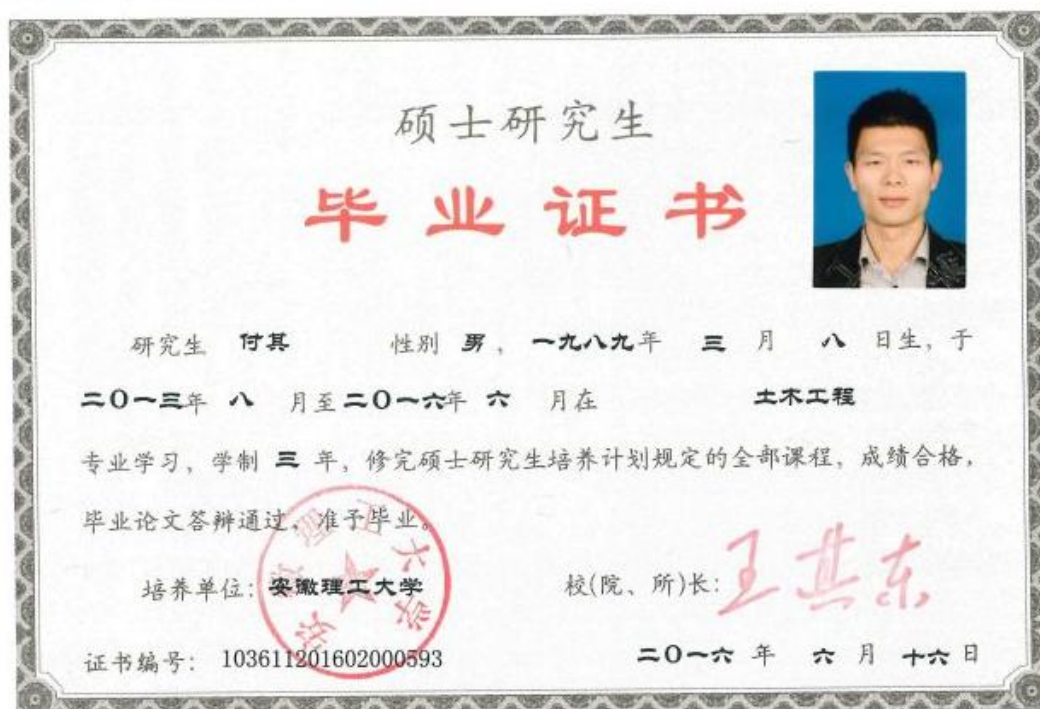 硕士研究生
毕业证书
研究生 付其 性别 男，一九八九年 三 月 八 日生，于
二〇一三年 八 月至二〇一六年 六 月在 土木工程
专业学习，学制 三 年，修完硕士研究生培养计划规定的全部课程，成绩合格，
毕业论文答辩通过，准予毕业。
培养单位：安徽理工大学 校(院、所)长：王其东
安徽理工大学
证书编号：103611201602000593 二〇一六 年 六 月 十六 日